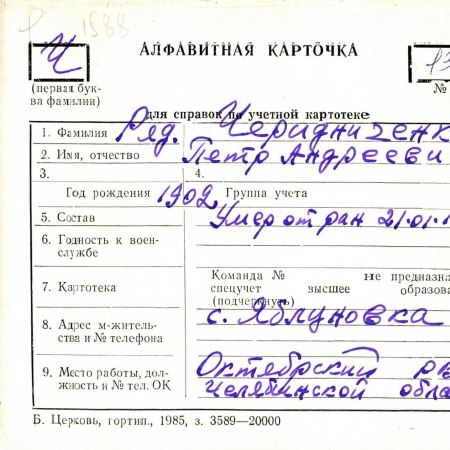 1588
Ч
АЛФАВИТНАЯ КАРТОЧКА
(первая бук-
ва фамилии)
№
для справок по учетной картотеке
1. Фамилия Ряд. Черидниченк
2. Имя, отчество Петр Андрееви
3. 4.
Год рождения 1902 Группа учета
5. Состав Умер от ран 21.01.1
6. Годность к воен-
службе
Команда № не предназна
7. Картотека спецучет высшее образова
(подчеркнуть)
8. Адрес м-житель-
ства и № телефона с. Яблуновка
9. Место работы, дол-
жность и № тел. ОК Октябрский
Челябинской обла
Б. Церковь, гортип., 1985, з. 3589—20000